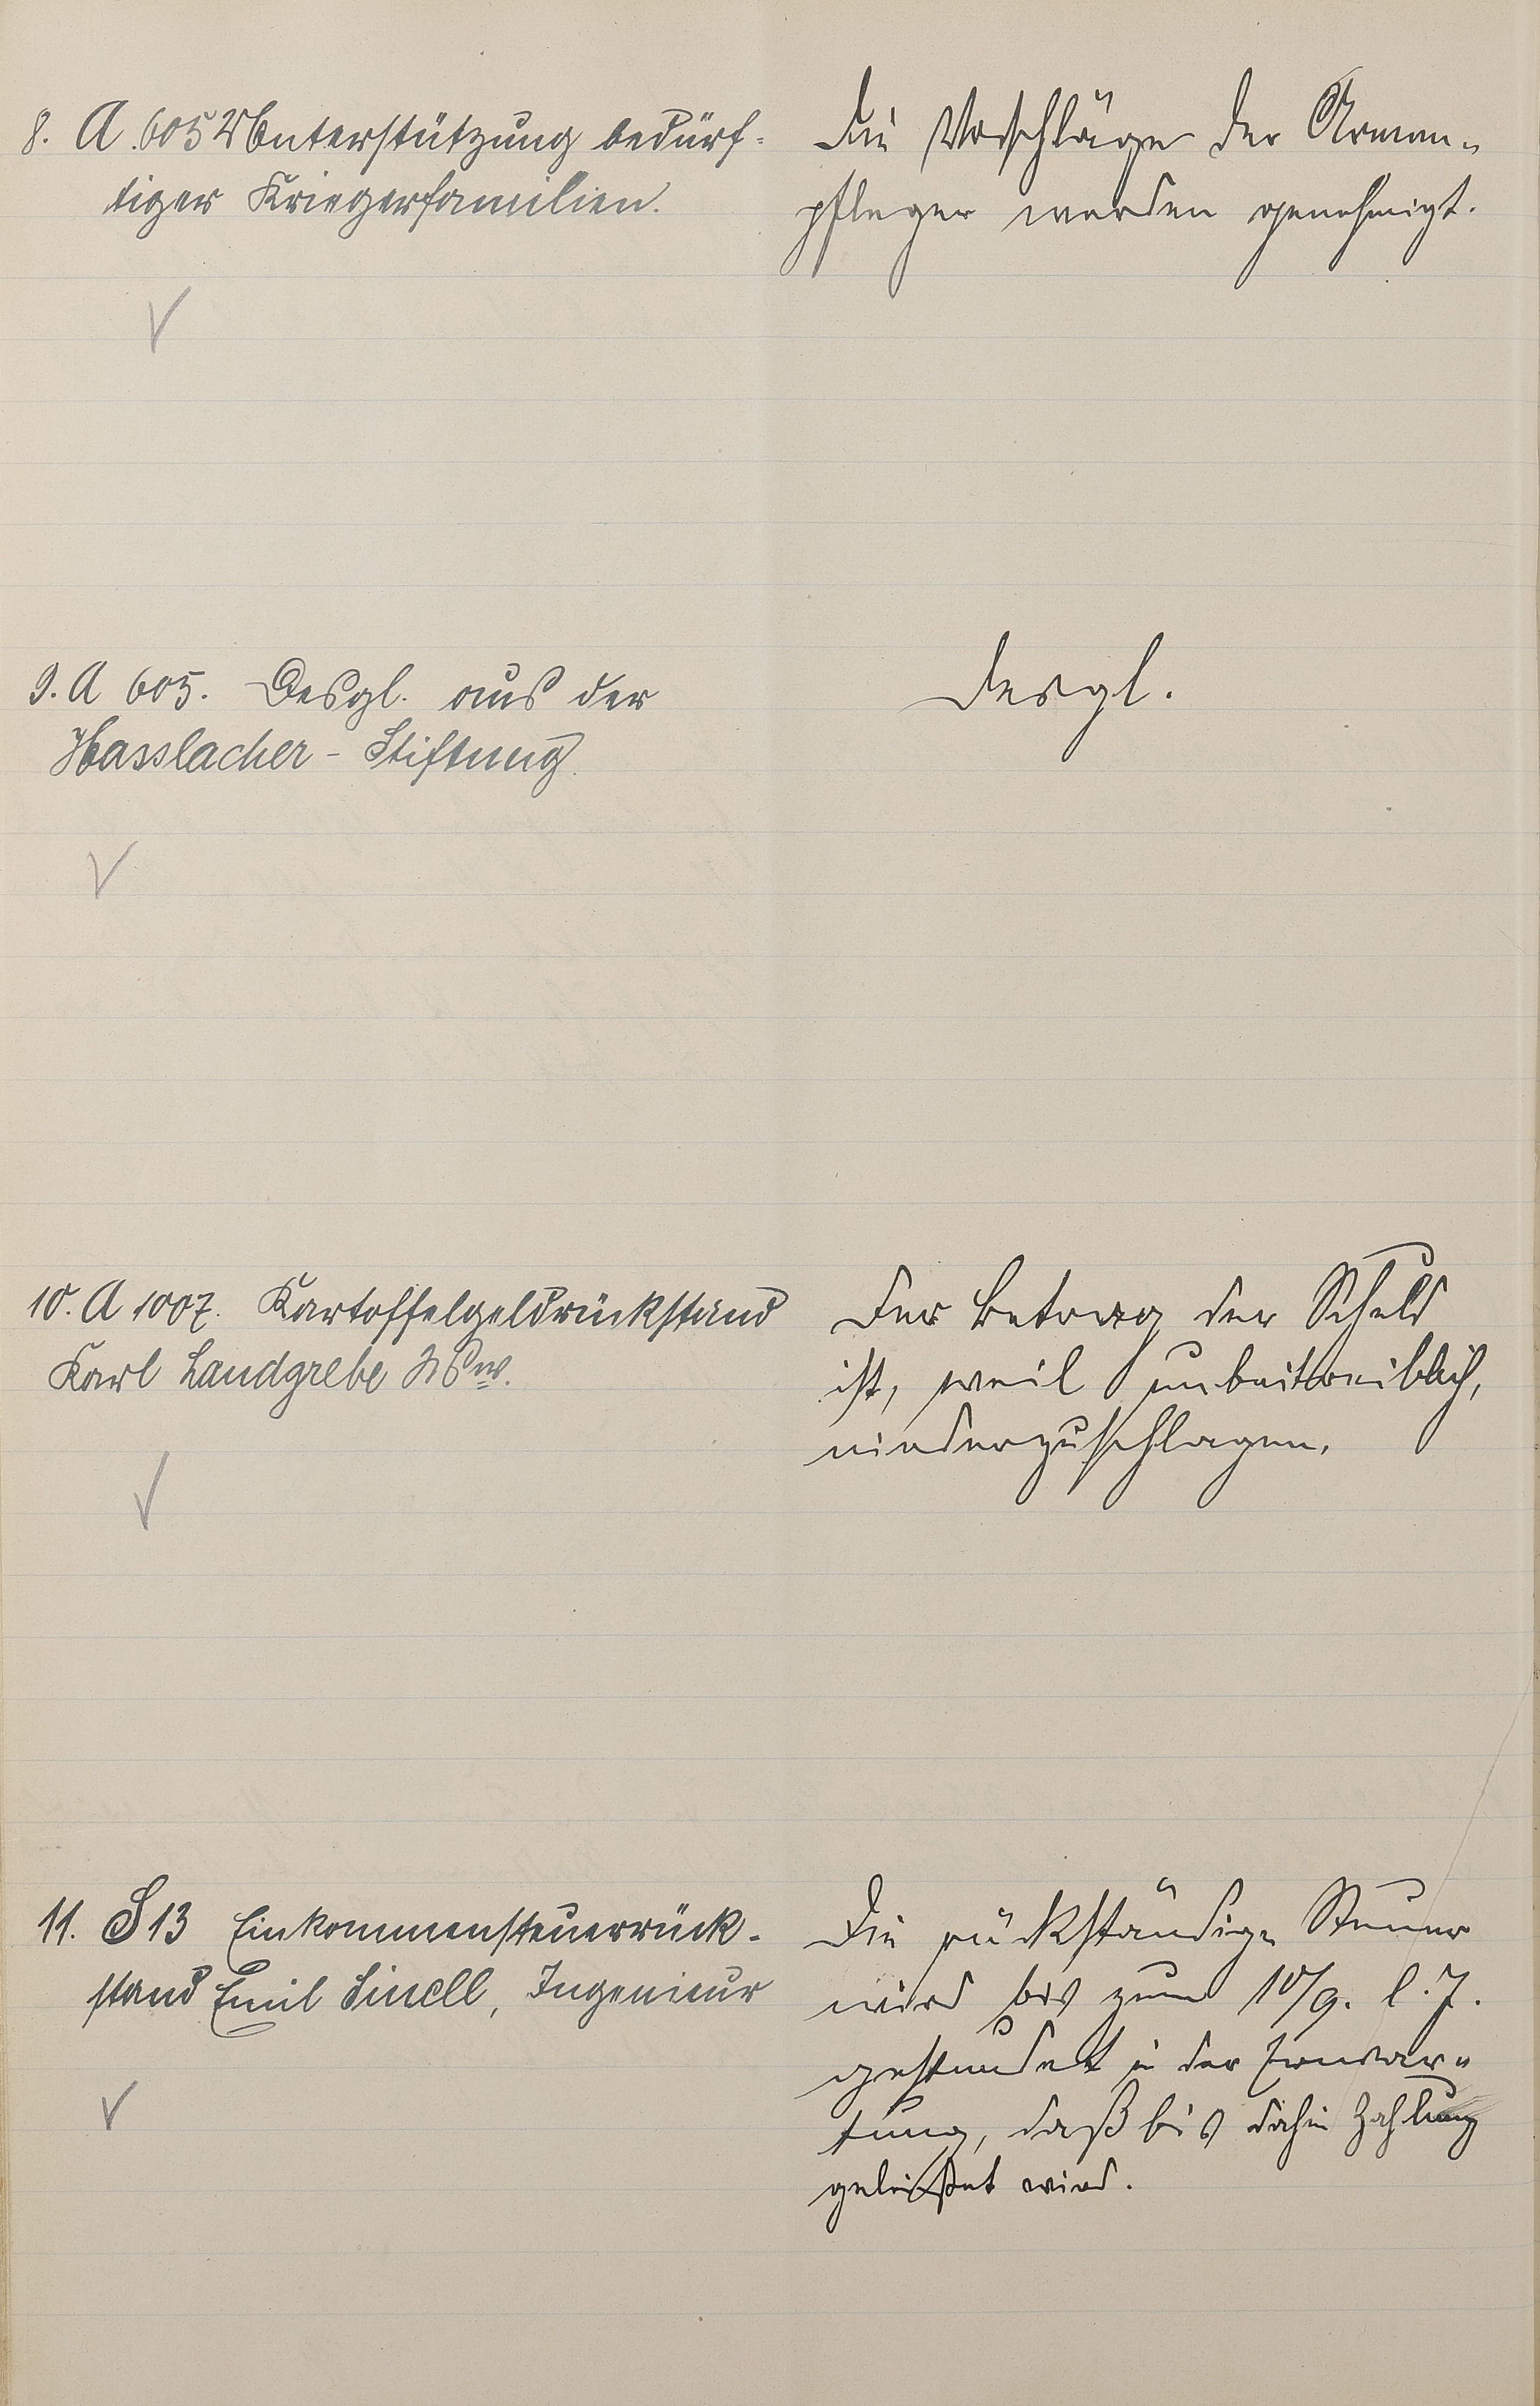 8. A. 605 Unterstützung bedürf-
tiger Kriegerfamilien.
Die Vorschläge der Armen-
pfleger werden genehmigt.
9. A 605. Desgl. aus der
Hasslacher - Stiftung.
Desgl.
10. A 1007. Kartoffelgeldrückstand
Karl Landgrebe Ww.
Der Betrag der Schuld
ist, weil unbeitreiblich,
niederzuschlagen.
11. S 13 Einkommensteuerrück-
stand Emil Sinell, Ingenieur
Die rückständige Steuer
wird bis zum 10/9. l. J.
gestundet in der Erwar-
tung, daß bis dahin Zahlung
geleistet wird.